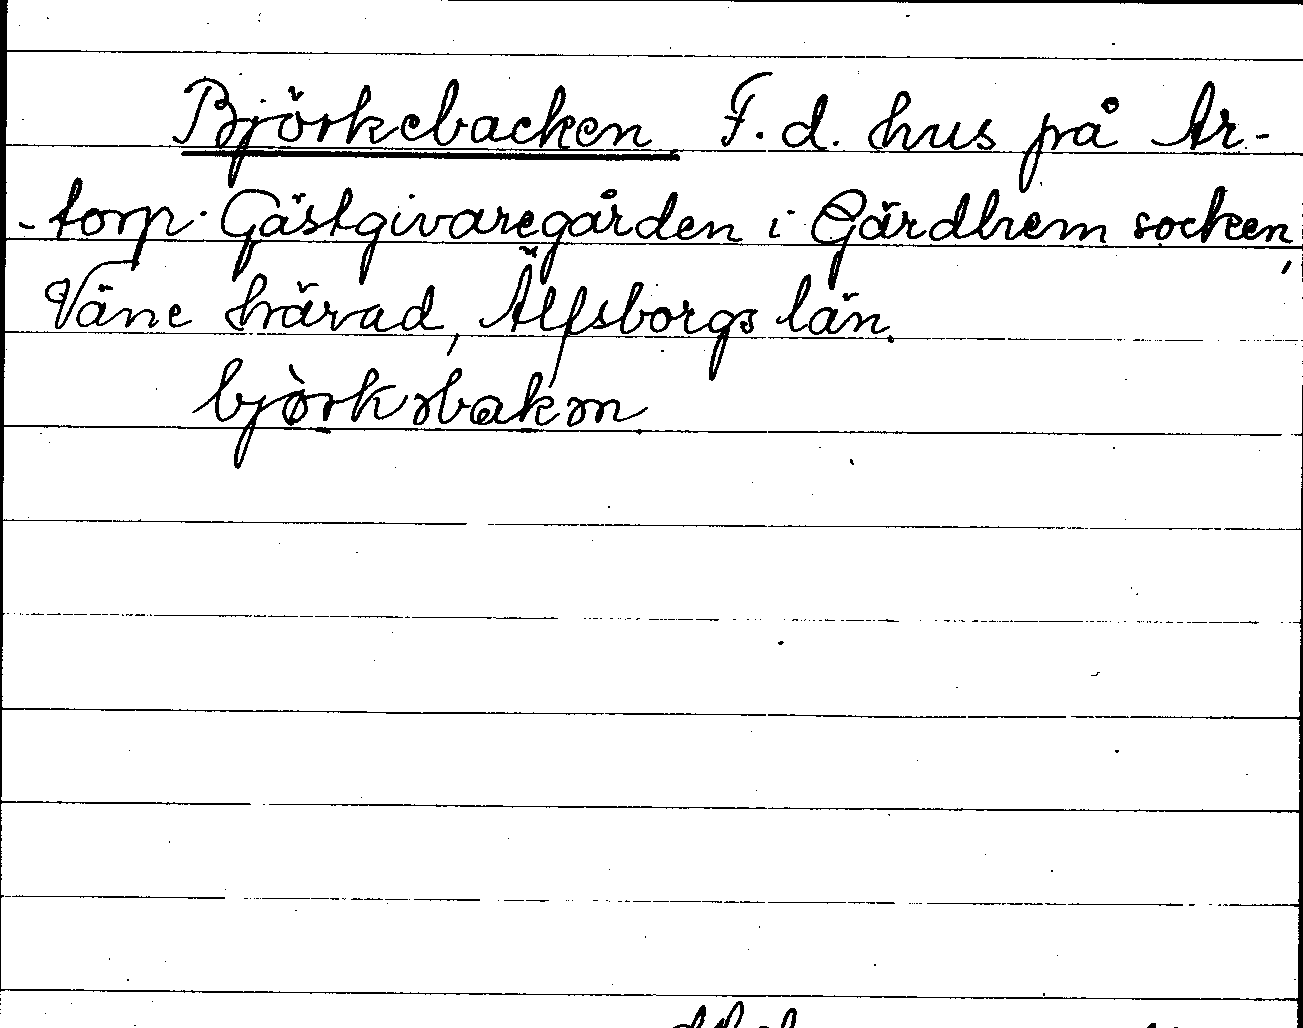 Björkebacken. F. d. hus på Ar-
-torp Gästgivaregården i Gärdhem socken,
Väne härad, Älfsborgs län.